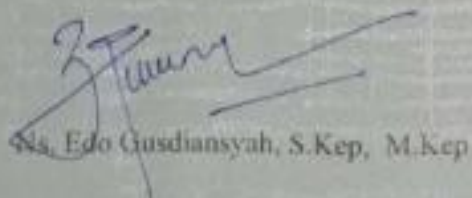 Ns. Edo Gusdiansyah, S.Kep, M.Kep